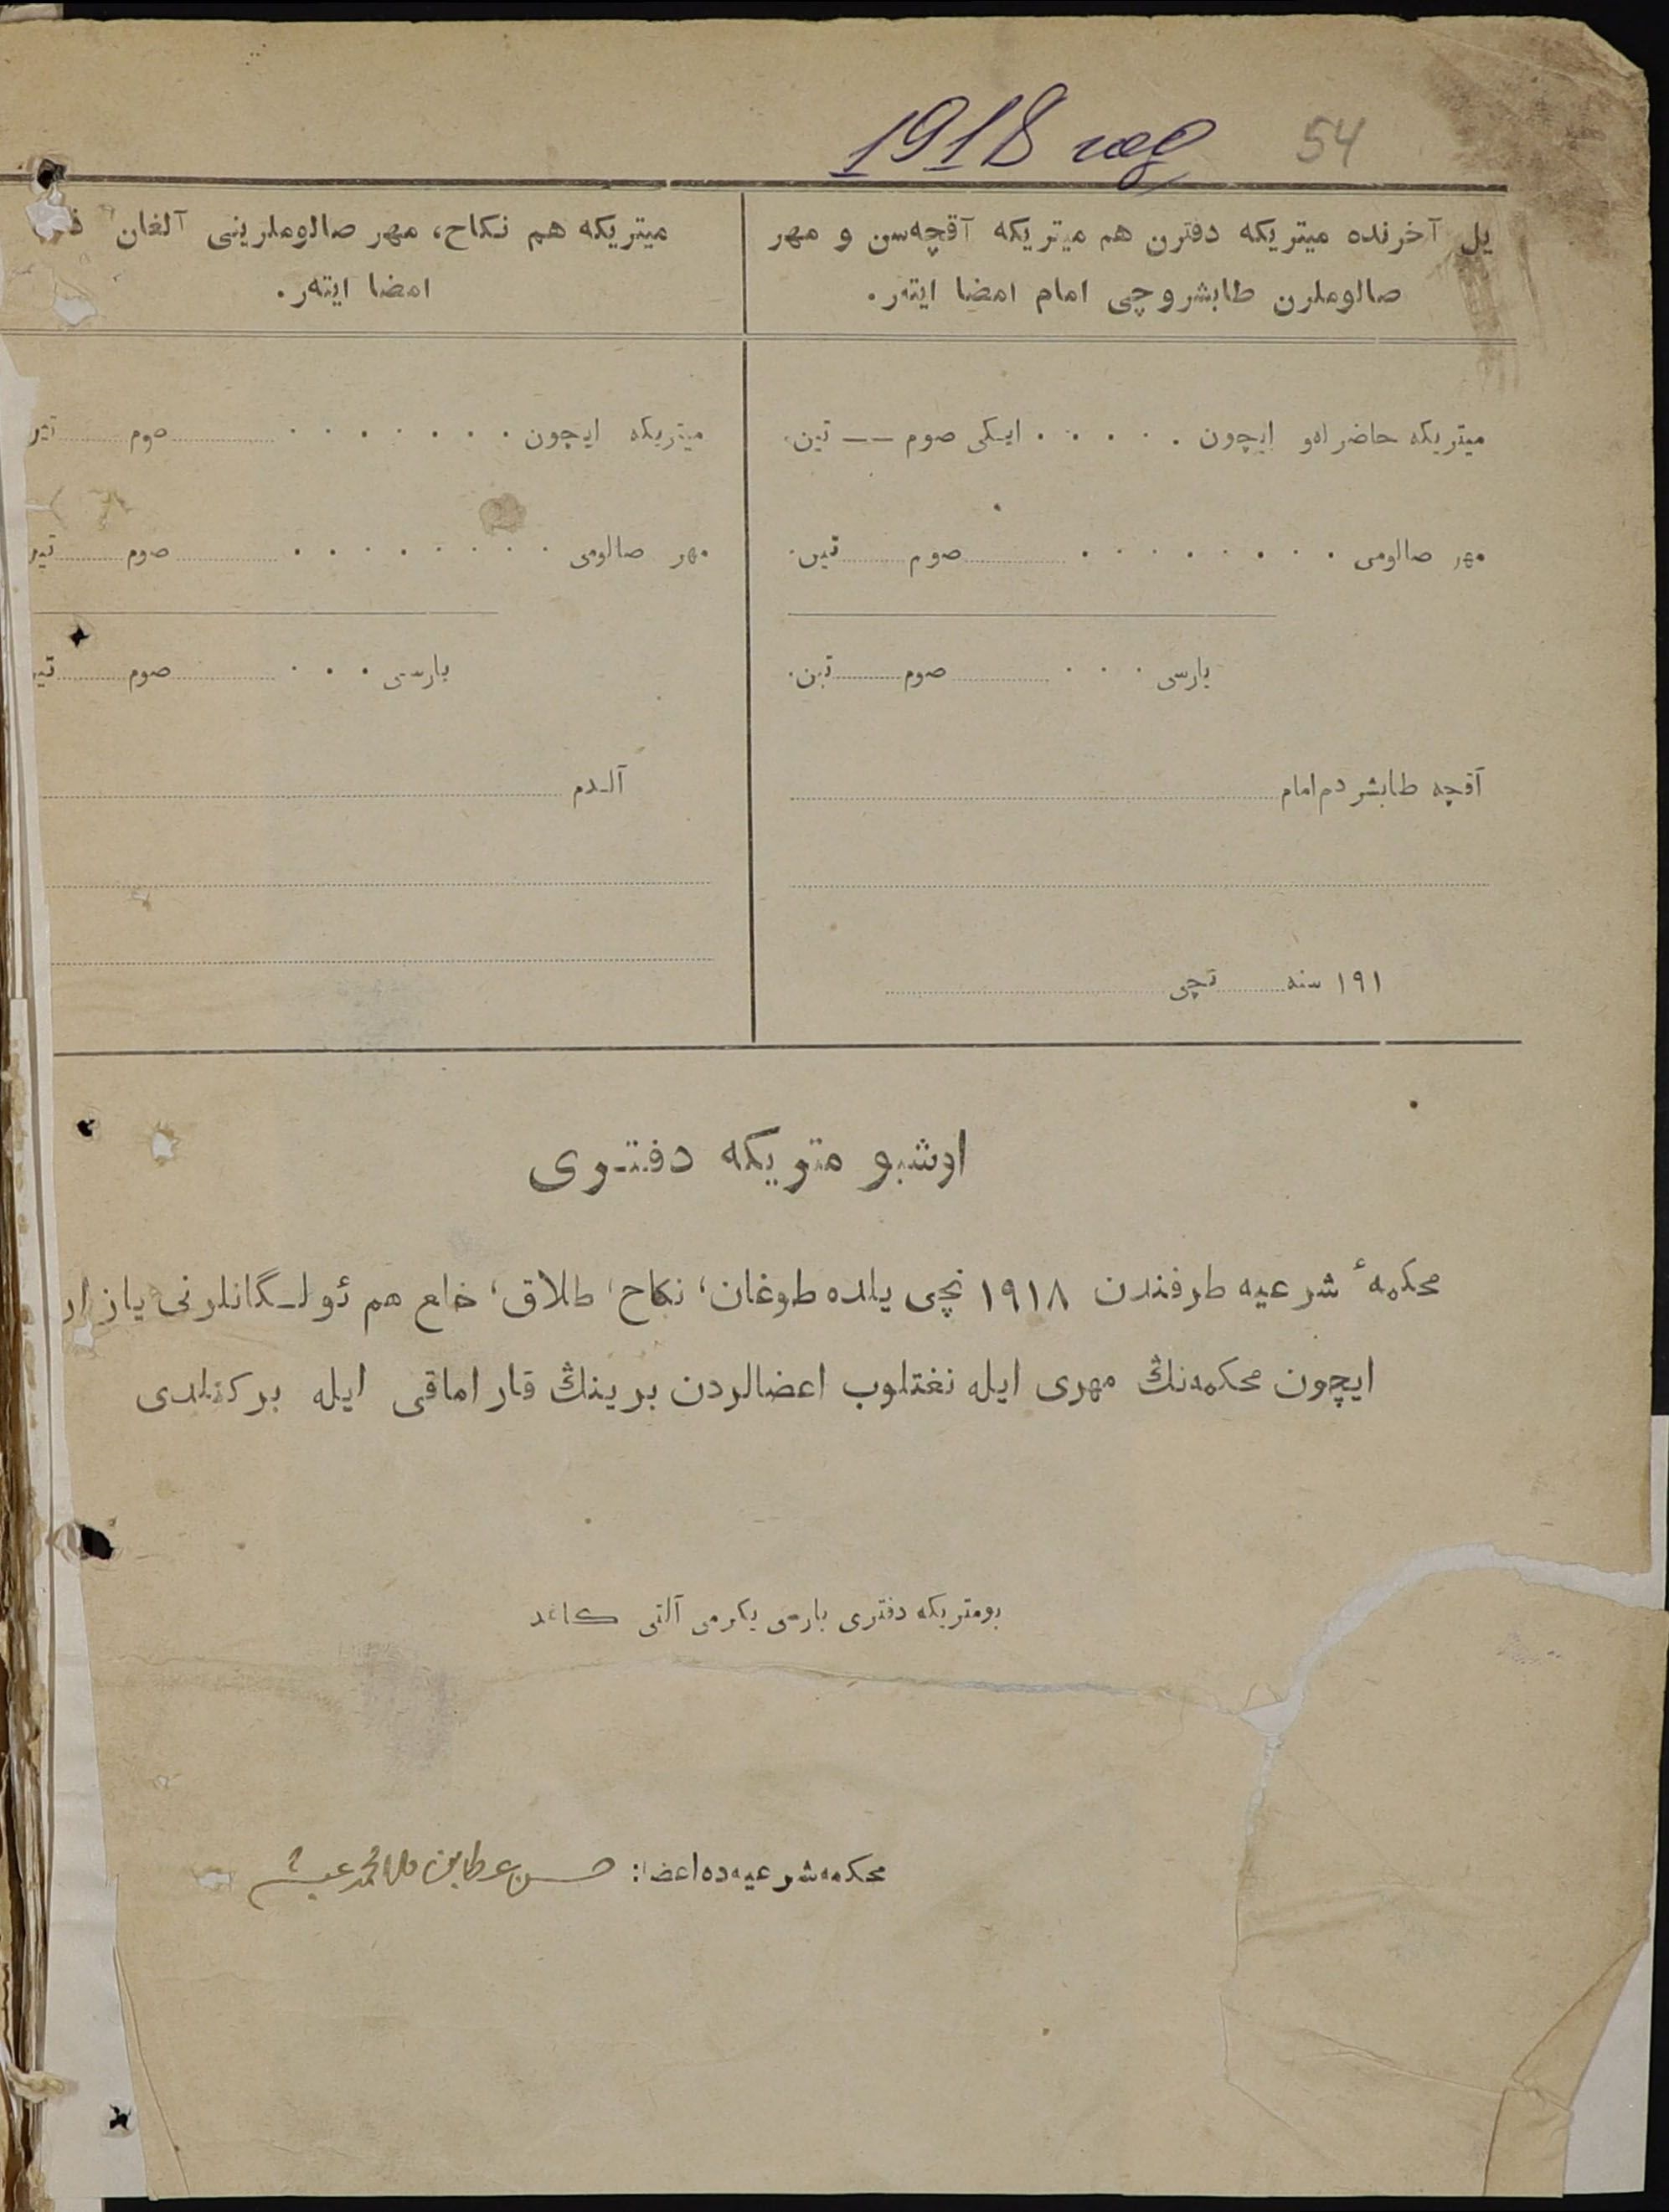 1918 год 54
يل آخرنده ميتريكه دفترن هم ميتريكه آقچه‌سن و مهر
صالوملرن طابشروچى امام امضا ايته‌ر.
ميتريكه هم نكاح، مهر صالوملرينى آلغان
امضا ايته‌ر.
ميتريكه حاضرلاو ايچون . . . . . ايكى صوم —— تين.
مهر صالومى . . . . . . . . صوم تين.
بارسى . . . صوم تين.
آقچه طابشردم امام
١٩١ سنه نچى
ميتريكه ايچون . . . . . . . صوم
مهر صالومى . . . . . . . . صوم
بارسى . . . صوم
آلـدم
اوشبو متريكه دفتـرى
محكمهٔ شرعيه طرفندن ١٩١٨ نچى يلده طوغان، نكاح، طلاق، خلع هم ئولـگانلرنى يازار
ايچون محكمه‌نڭ مهرى ايله نغتلوب اعضالردن برينڭ قار اماقى ايله بركتلدى
بومتريكه دفترى بارسى يكرمى آلتى كاغد
محكمه شرعيه‌ده اعضا: حسن عطا بن ملا محمد